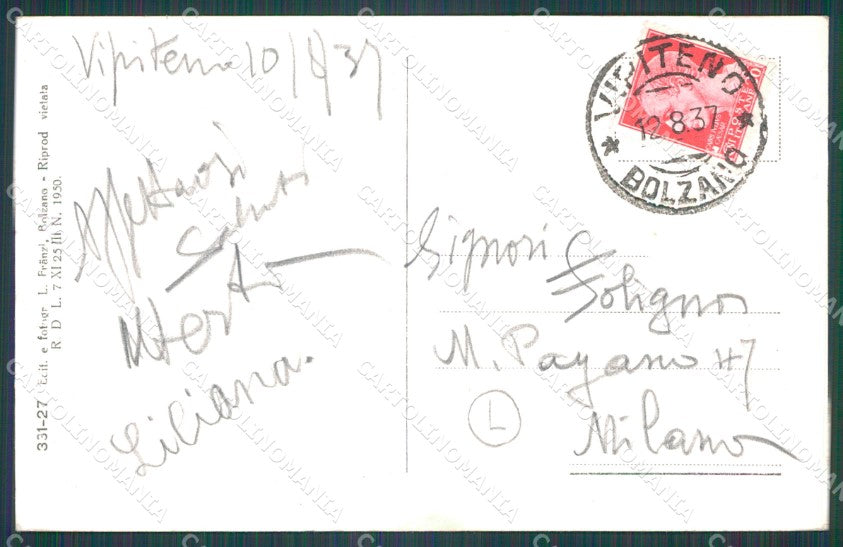 Vipiteno 10/8/37
Affettuosi
saluti
Liliana.
331-27 Edit. e fotogr. L. Fränzl, Bolzano - Riprod vietata
R D L. 7 XI 25/III N. 1950.
VIPITENO
12.8.37
BOLZANO
POSTE
ITALIANE
Signori
Folignos
M. Pagano 47
Milano
L
CARTOLINOMANIA